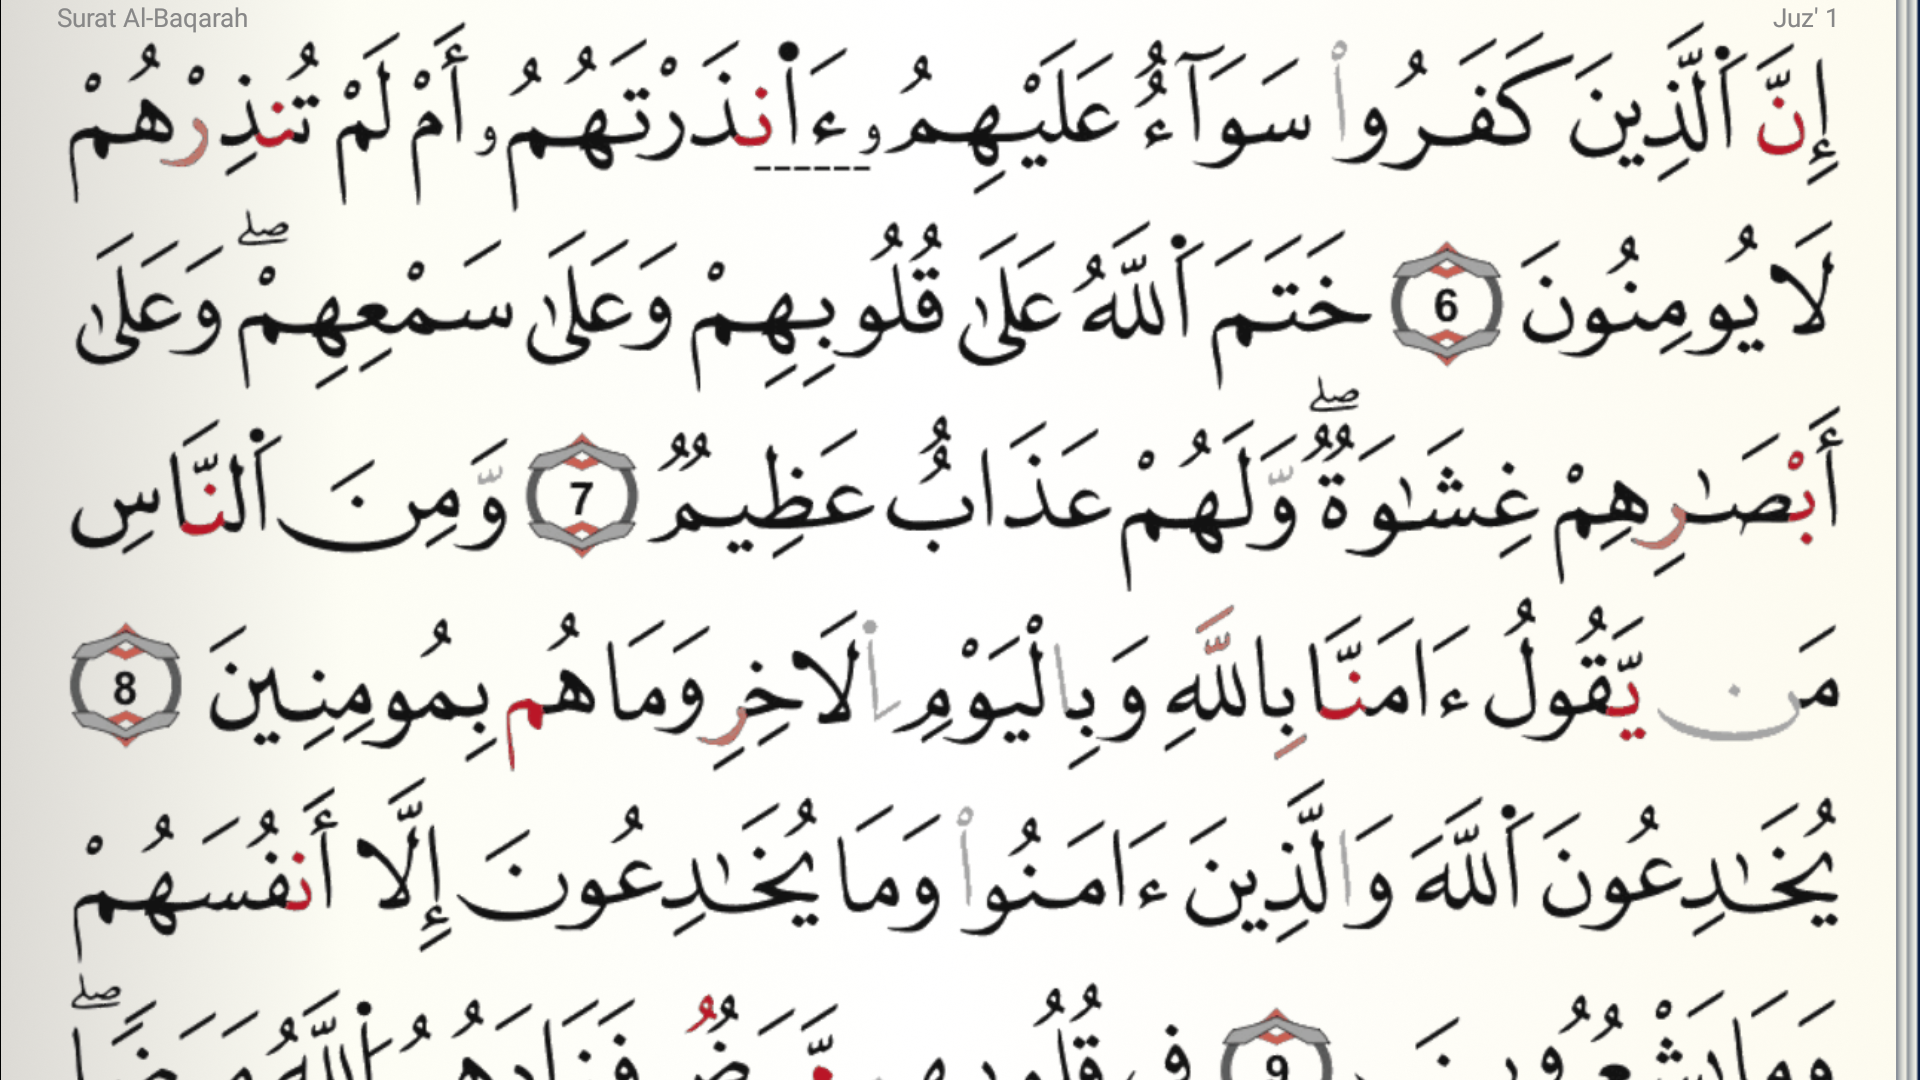 Surat Al-Baqarah
Juz' 1
إِنَّ ٱلَّذِينَ كَفَرُوا۟ سَوَآءٌ عَلَيْهِمُۥ ءَا۬نذَرْتَهُمُۥ أَمْ لَمْ تُنذِرْهُمْ
لَا يُومِنُونَ 6 خَتَمَ ٱللَّهُ عَلَىٰ قُلُوبِهِمْ وَعَلَىٰ سَمْعِهِمْۖ وَعَلَىٰ
أَبْصَـٰرِهِمْ غِشَـٰوَةٌۖ وَّلَهُمْ عَذَابٌ عَظِيمٌ 7 وَّمِنَ ٱلنَّاسِ
مَن يَّقُولُ ءَامَنَّا بِاللَّهِ وَبِالْيَوْمِ اِ۬لَاخِرِ وَمَا هُم بِمُومِنِينَ 8
يُخَـٰدِعُونَ ٱللَّهَ وَالَّذِينَ ءَامَنُوا۟ وَمَا يُخَـٰدِعُونَ إِلَّا أَنفُسَهُمْ
وَمَا يَشْعُرُونَ 9 فِي قُلُوبِهِم مَّرَضٌ فَزَادَهُمُ ٱللَّهُ مَرَضاًۖ